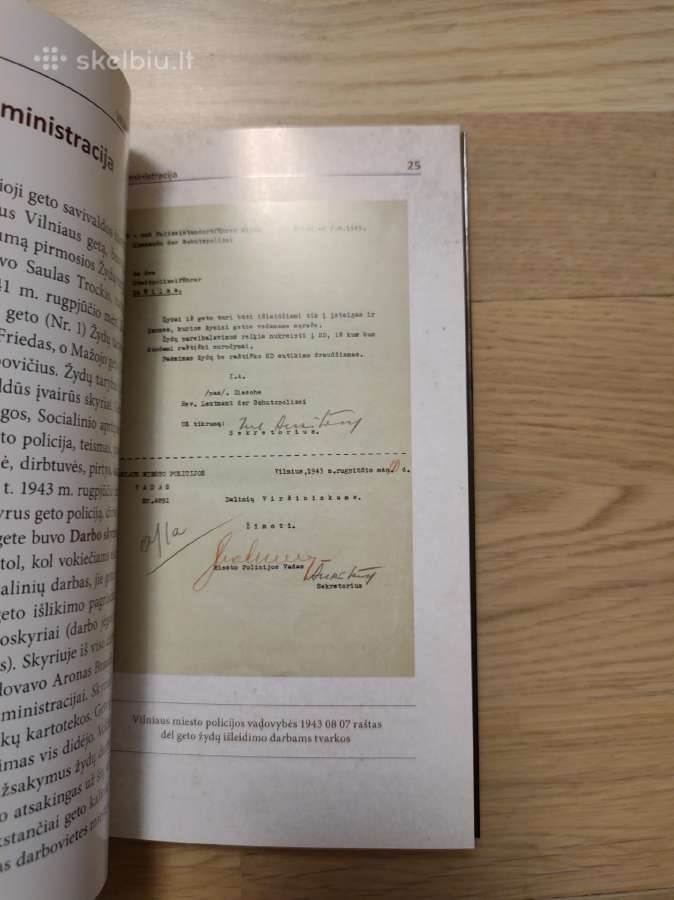 skelbiu.lt
ministracija
ioji geto savivaldos
us Vilniaus getą,
umą pirmosios Žydų
vo Saulas Trockis,
41 m. rugpjūčio mėn.
geto (Nr. 1) Žydų
Friedas, o Mažojo
bovičius. Žydų
ldūs įvairūs skyriai
gos, Socialinio
to policija, teismas,
ė, dirbtuvės, pirtys,
t. 1943 m. rugpjūčio
yrus geto policiją,
gete buvo Darbo
tol, kol vokiečiams
alinių darbas, jie
geto išlikimo
oskyriai (darbo
s). Skyriuje iš viso
lovavo Aronas
ministracijai.
kų kartotekos.
imas vis didėjo.
žsakymus žydų
o atsakingas už
kstančiai geto
as darbovietes
ministracija 25
und Polizeistandortführer
Kommando der Schutzpolizei
An den
Wilna.
Žydai iš geto turi būti išleidžiami tik į įstaigas ir
įmones, kurios žymimi getos vedamame sąraše.
Žydų pareikalavimus reikia nukreipti į SD, iš kur bus
duodami raštiški nurodymai.
Paėmimas žydų be raštiško SD sutikimo draudžiamas.
I.A.
Ziesche
Rev. Leutnant der Schutzpolizei
Už tikrumą:
Sekretorius.
VILNIAUS MIESTO POLICIJOS Vilnius, 1943 m. rugpiūčio mėn. 10 d.
VADAS
Nr. 4891 Dalinių Viršininkams.
Žinoti.
Miesto Policijos Vadas
Sekretorius
Vilniaus miesto policijos vadovybės 1943 08 07 raštas
dėl geto žydų išleidimo darbams tvarkos